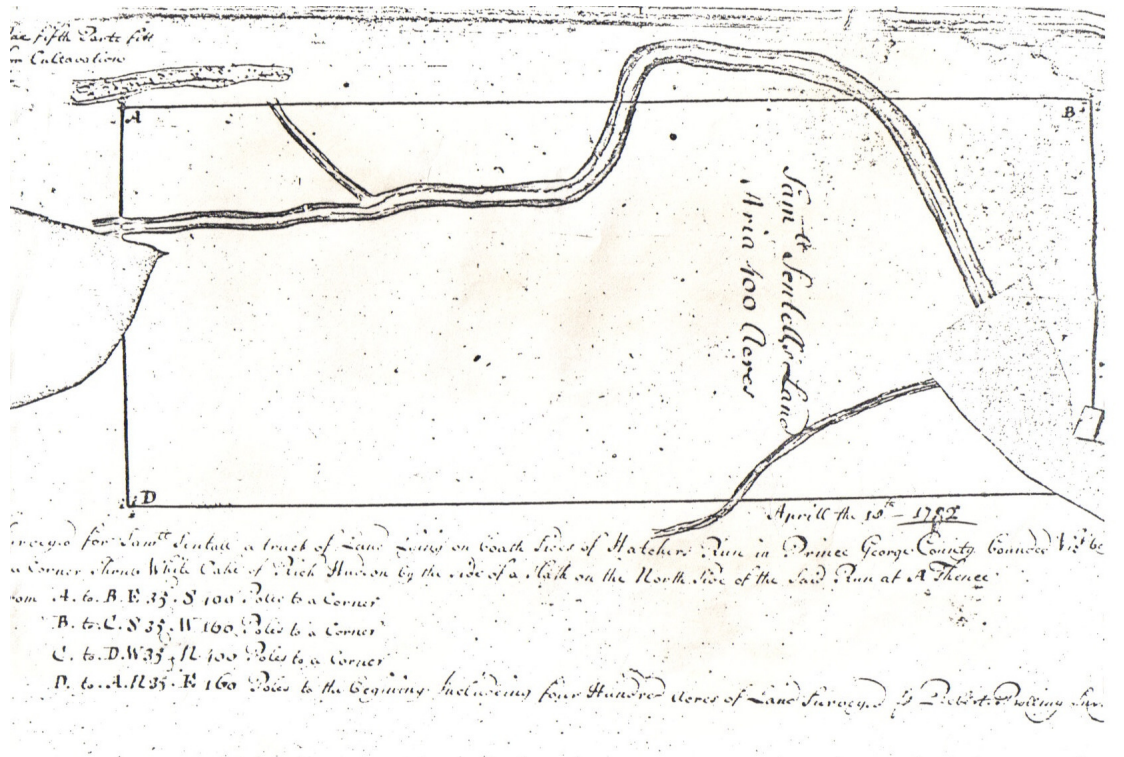 fifth Parte fitt
Cultavation
A
B
Sam.ll Sentell's Land
Aria 400 Acres
D
Aprill the 10th – 1752
for Sam.ll Sentall a tract of Land Lying on boath Sides of Hatchers Run in Prince George County bounded Viz
a Corner Shrub White Oake of Rich Hudson by the side of a Slash on the North Side of the Said Run at A Thence
from A. to. B. E 35. S 400 Poles to a Corner
B. to. C. S 35. W 160 Poles to a Corner
C. to. D. W 35. N. 400 Poles to a Corner
D. to. A. N 35. E 160 Poles to the begining Including four Hundred Acres of Land Surveyed Robert Bolling Sur